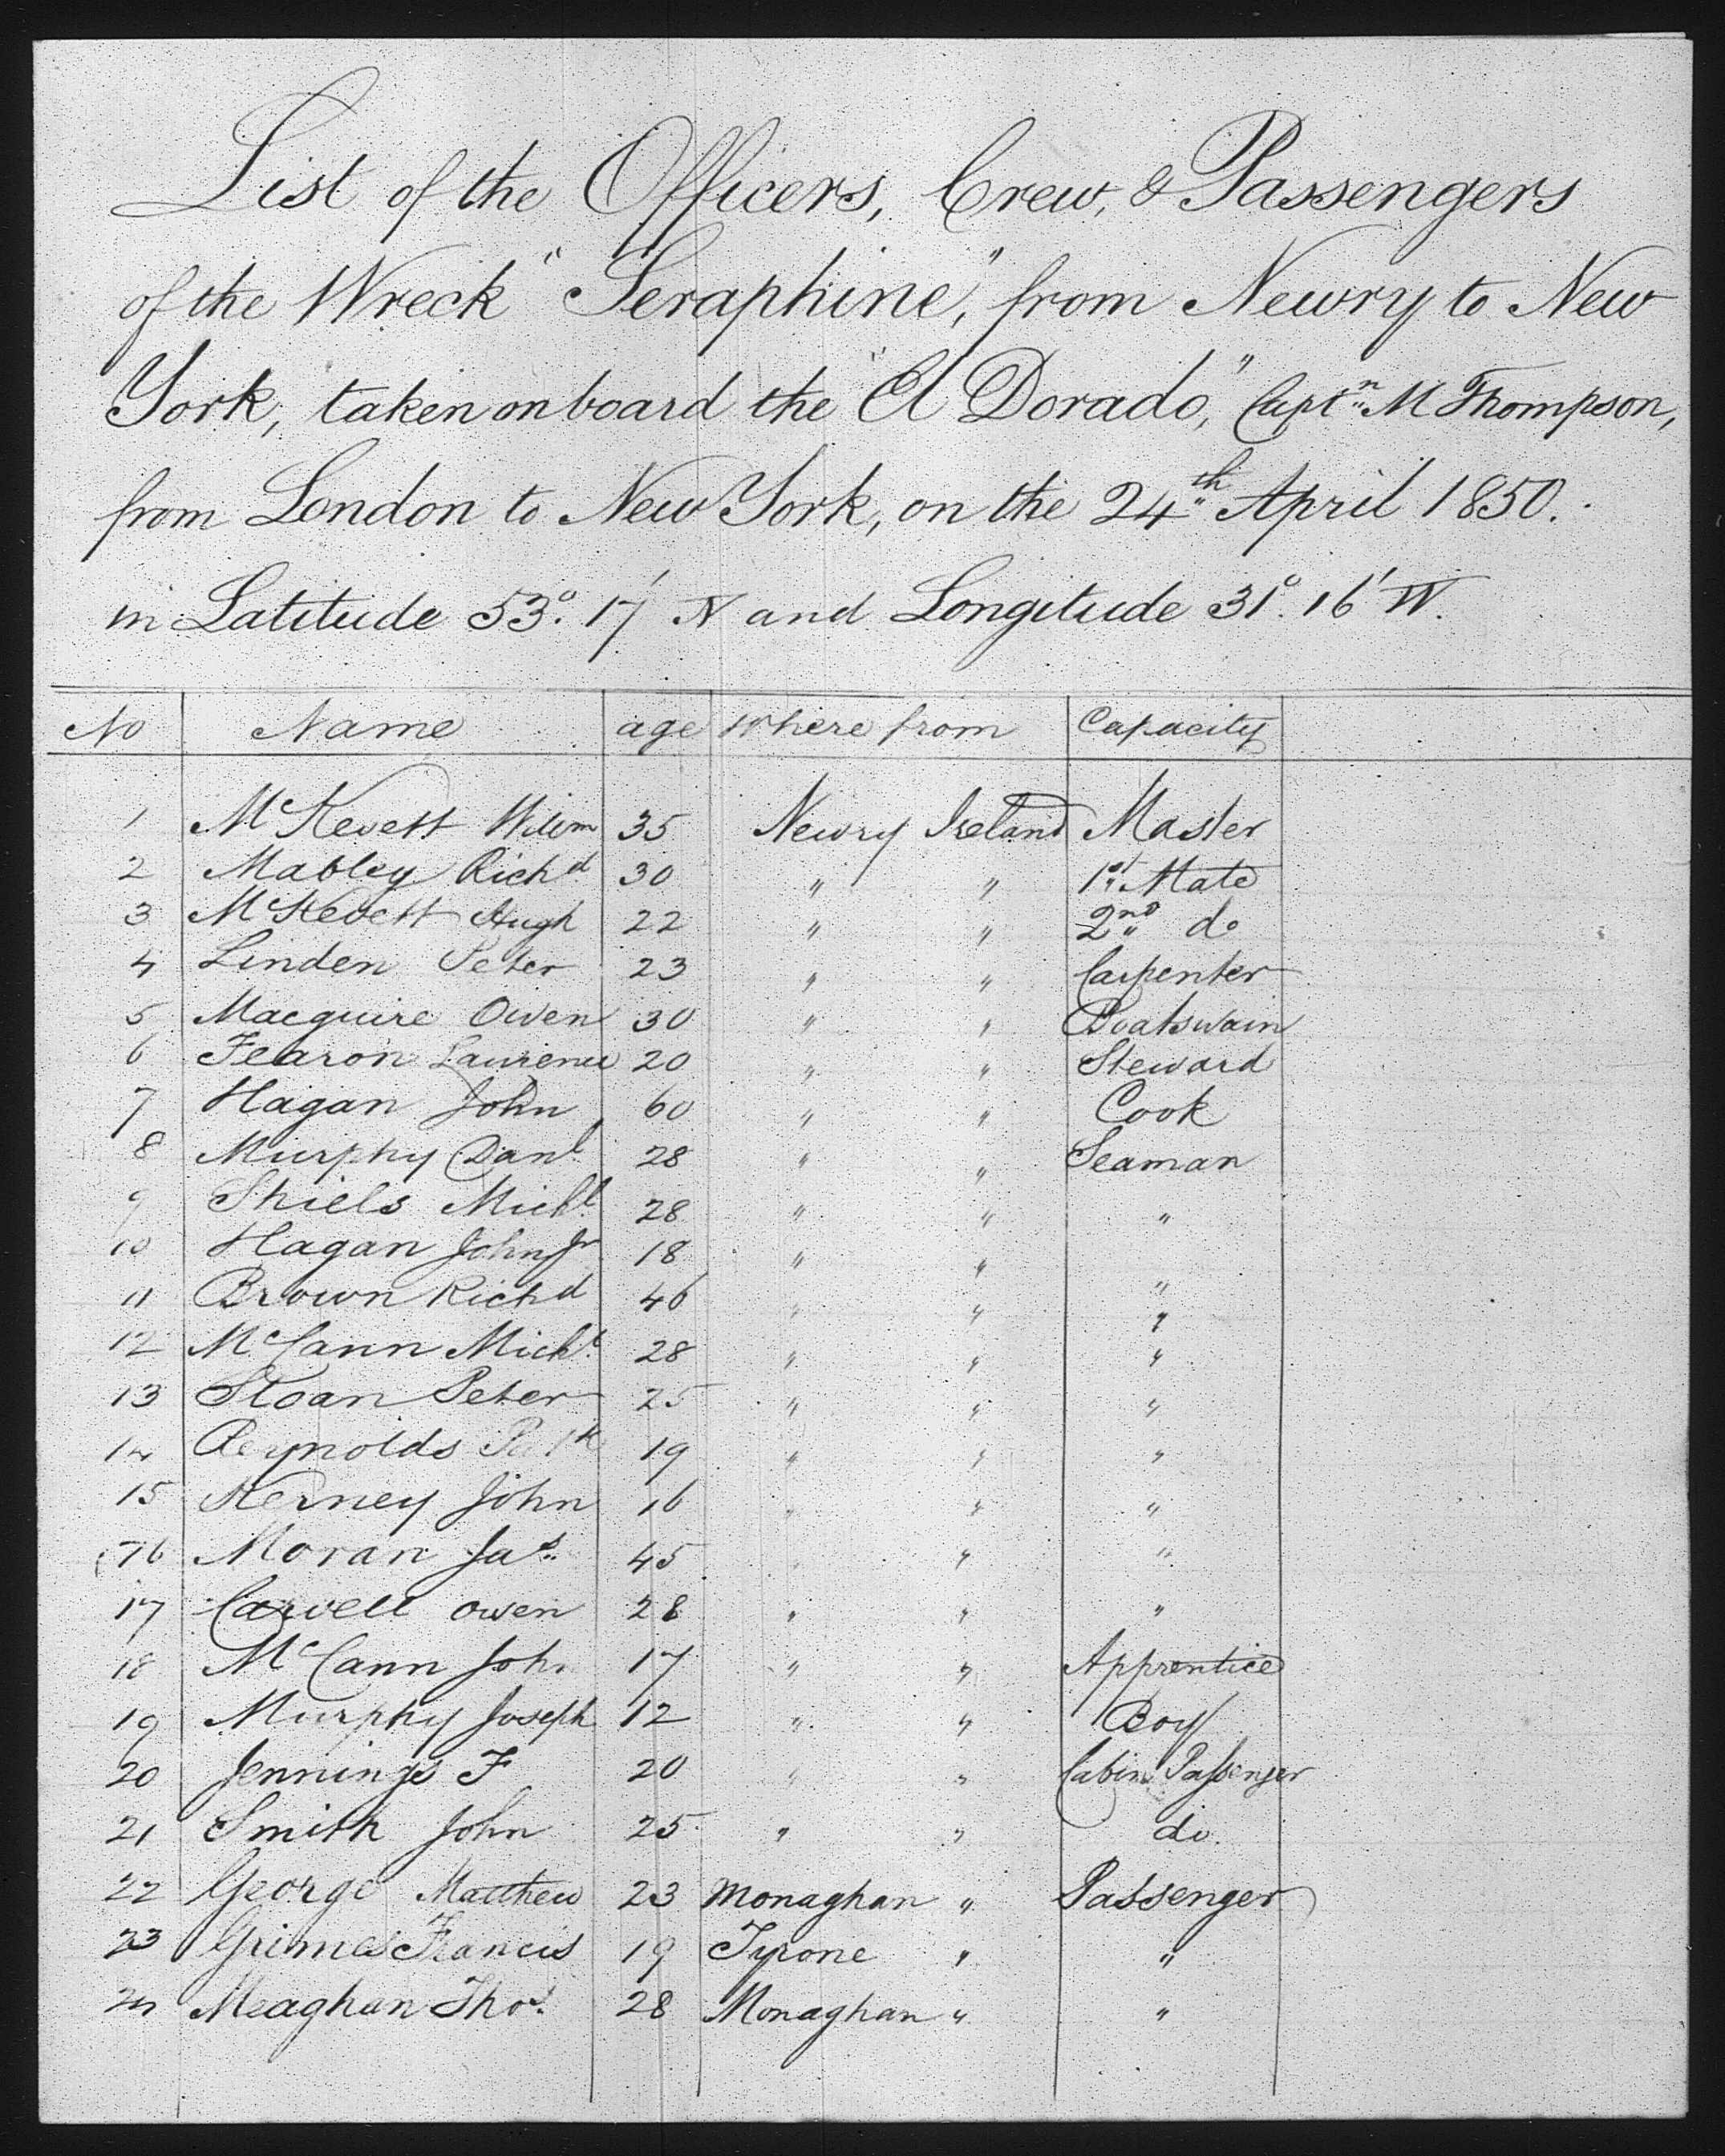 List of the Officers, Crew, & Passengers
of the Wreck "Seraphine," from Newry to New
York, taken on board the "El Dorado," Captn M Thompson,
from London to New York, on the 24th April 1850.
in Latitude 53°. 17' N and Longitude 31°. 16' W.
No Name age Where from Capacity
1 McKevett Willm 35 Newry Ireland Master
2 Mabley Richd 30 " " 1st Mate
3 McKevett Hugh 22 " " 2nd do
4 Linden Peter 23 " " Carpenter
5 Macguire Owen 30 " " Boatswain
6 Fearon Laurence 20 " " Steward
7 Hagan John 60 " " Cook
8 Murphy Danl 28 " " Seaman
9 Shiels Michl 28 " " "
10 Hagan John Jr 18 " " "
11 Brown Richd 46 " " "
12 McCann Michl 28 " " "
13 Sloan Peter 25 " " "
14 Reynolds Patk 19 " " "
15 Kerney John 16 " " "
16 Moran Jas 45 " " "
17 Carvell Owen 28 " " "
18 McCann John 17 " " Apprentice
19 Murphy Joseph 12 " " Boy
20 Jennings F 20 " " Cabin Passenger
21 Smith John 25 " " do.
22 George Matthew 23 Monaghan " Passenger
23 Grimes Francis 19 Tyrone " "
24 Meaghan Thos 28 Monaghan " "